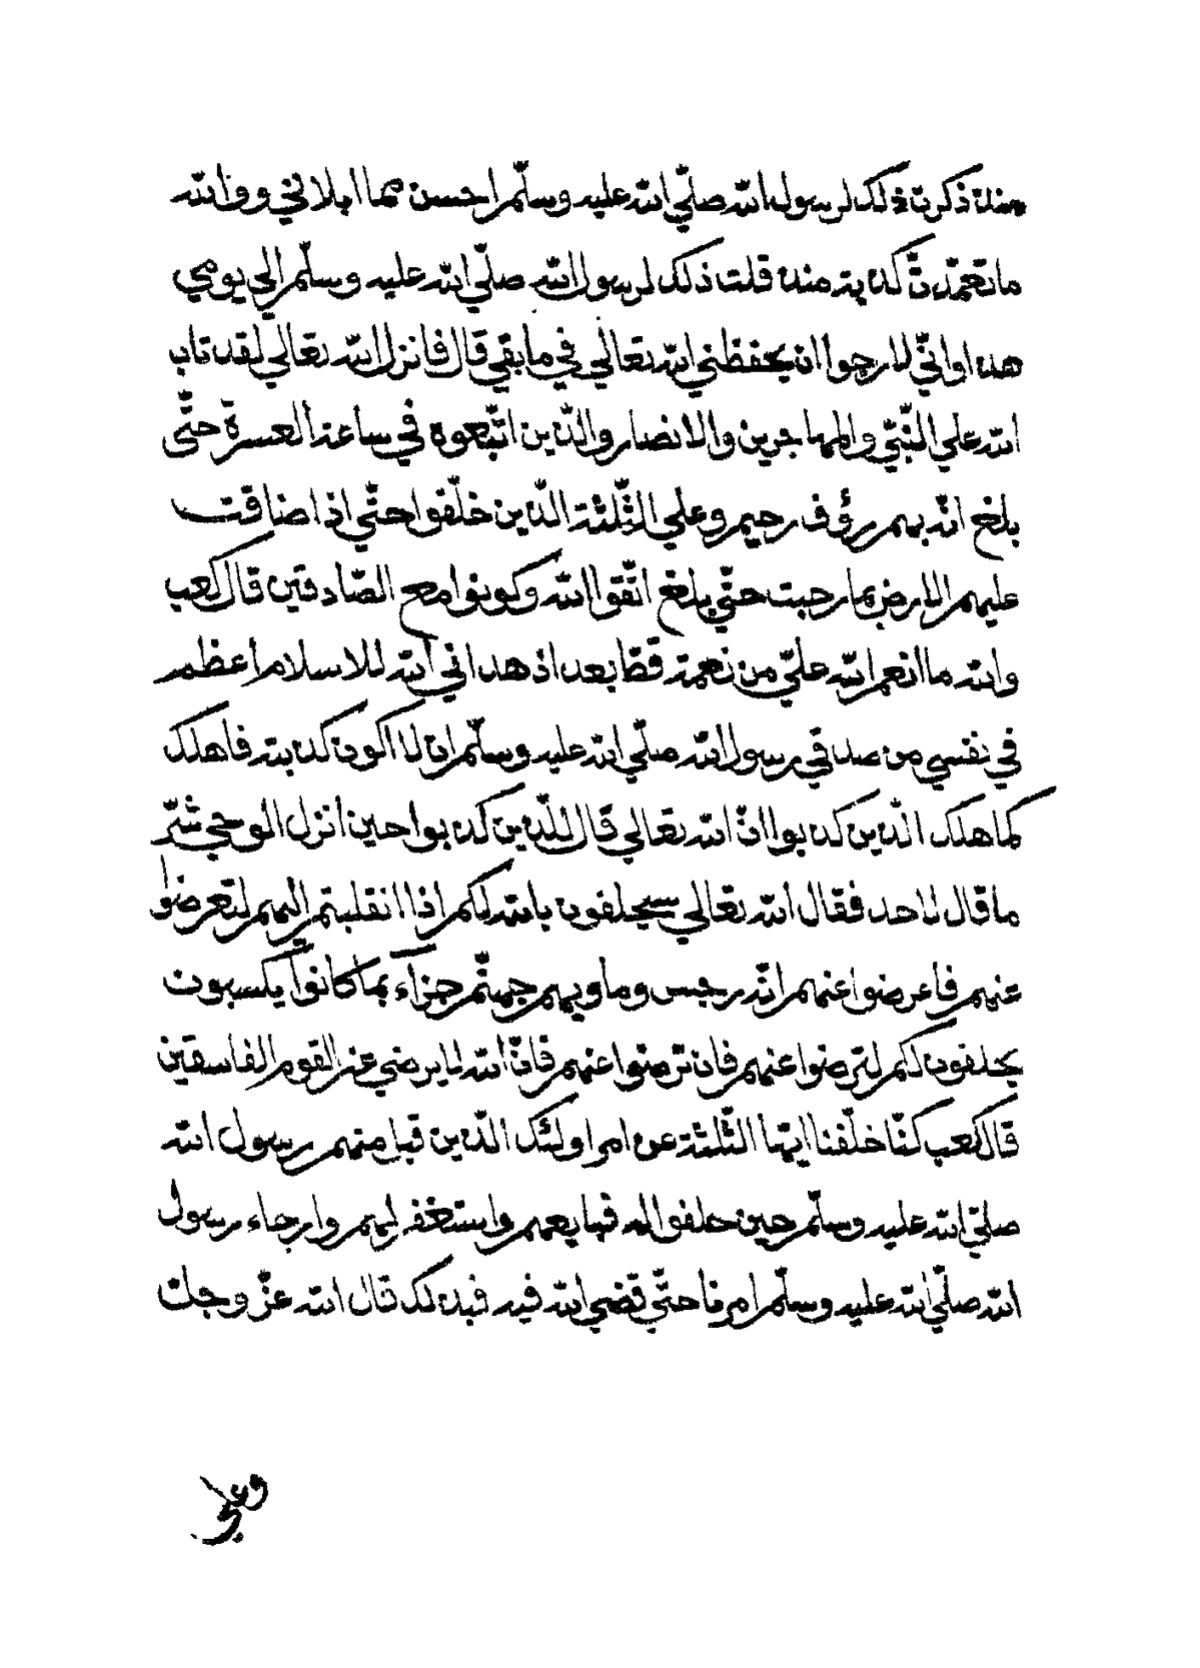 منذ ذكرت ذلك لرسول الله صلّي الله عليه وسلّم احسن مما ابلاني ووالله
ما تعمّدت كذبة منذ قلت ذلك لرسول الله صلّي الله عليه وسلّم الي يومي
هذا وانّي لارجوا ان يحفظني الله تعالي في ما بقي قال فانزل الله تعالي لقد تاب
الله علي النّبيّ والمهاجرين والانصار والّذين اتّبعوه في ساعة العسرة حتّى
بلغ انّه بهم رؤف رحيم وعلي الثّلثة الّذين خلّفوا حتّي اذا ضاقت
عليهم الارض بما رحبت حتّي بلغ اتّقوا الله وكونوا مع الصّادقين قال كعب
والله ما انعم الله عليّ من نعمة قطّ بعد اذ هداني الله للاسلام اعظم
في نفسي من صدقي رسول الله صلّي الله عليه وسلّم ان لا اكون كذبته فاهلك
كما هلك الّذين كذبوا انّ الله تعالي قال للّذين كذبوا حين انزل الوحي شرّ
ما قال لاحد فقال الله تعالي سيحلفون بالله لكم اذا انقلبتم اليهم لتعرضوا
عنهم فاعرضوا عنهم انّهم رجس وماويهم جهنّم جزآء بما كانوا يكسبون
يحلفون لكم لترضوا عنهم فان ترضوا عنهم فانّ الله لا يرضي عن القوم الفاسقين
قال كعب كنّا خلّفنا ايّها الثّلثة عن امر اولئك الّذين قبل منهم رسول الله
صلّي الله عليه وسلّم حين حلفوا له فبايعهم واستغفر لهم وارجاء رسول
الله صلّي الله عليه وسلّم امرنا حتّي قضي الله فيه فبذلك قال الله عزّ وجلّ
وعلي